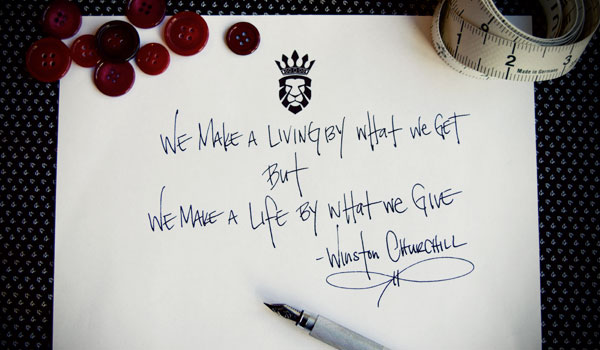 We Make a Living by what we get
But
We Make a Life by what we Give
-Winston Churchill
1 2
Made in Germany